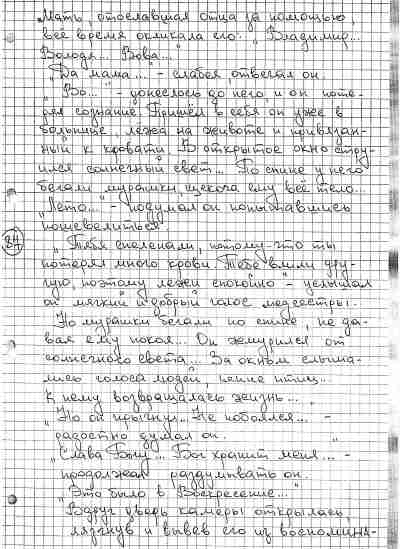 Мать, отославшая отца за помощью,
всё время окликала его: „Владимир...
Володя... Вова..."
„Да мама..." - слабея отвечал он.
„Во..." - донеслось до него, и он поте-
рял сознание. Пришёл в себя он уже в
больнице, лёжа на животе и привязан-
ный к кровати. В открытое окно стру-
ился солнечный свет... По спине у него
бегали мурашки, щекоча ему всё тело...
„Лето..." - подумал он попытавшись
пошевелиться.
84
„Тебя спеленали, потому-что ты
потерял много крови. Тебе влили дру-
гую, поэтому лежи спокойно" - услышал
он мягкий и добрый голос медсестры.
Но мурашки бегали по спине, не да-
вая ему покоя... Он жмурился от
солнечного света... За окном слыша-
лись голоса людей, пение птиц...
К нему возвращалась жизнь..."
„Но он прыгнул... Не побоялся..." -
радостно думал он.
„Слава Богу... Бог хранит меня..." -
продолжал раздумывать он.
„Это было в Воскресение..."
Вдруг дверь камеры открылась,
лязгнув и вывев его из воспомина-